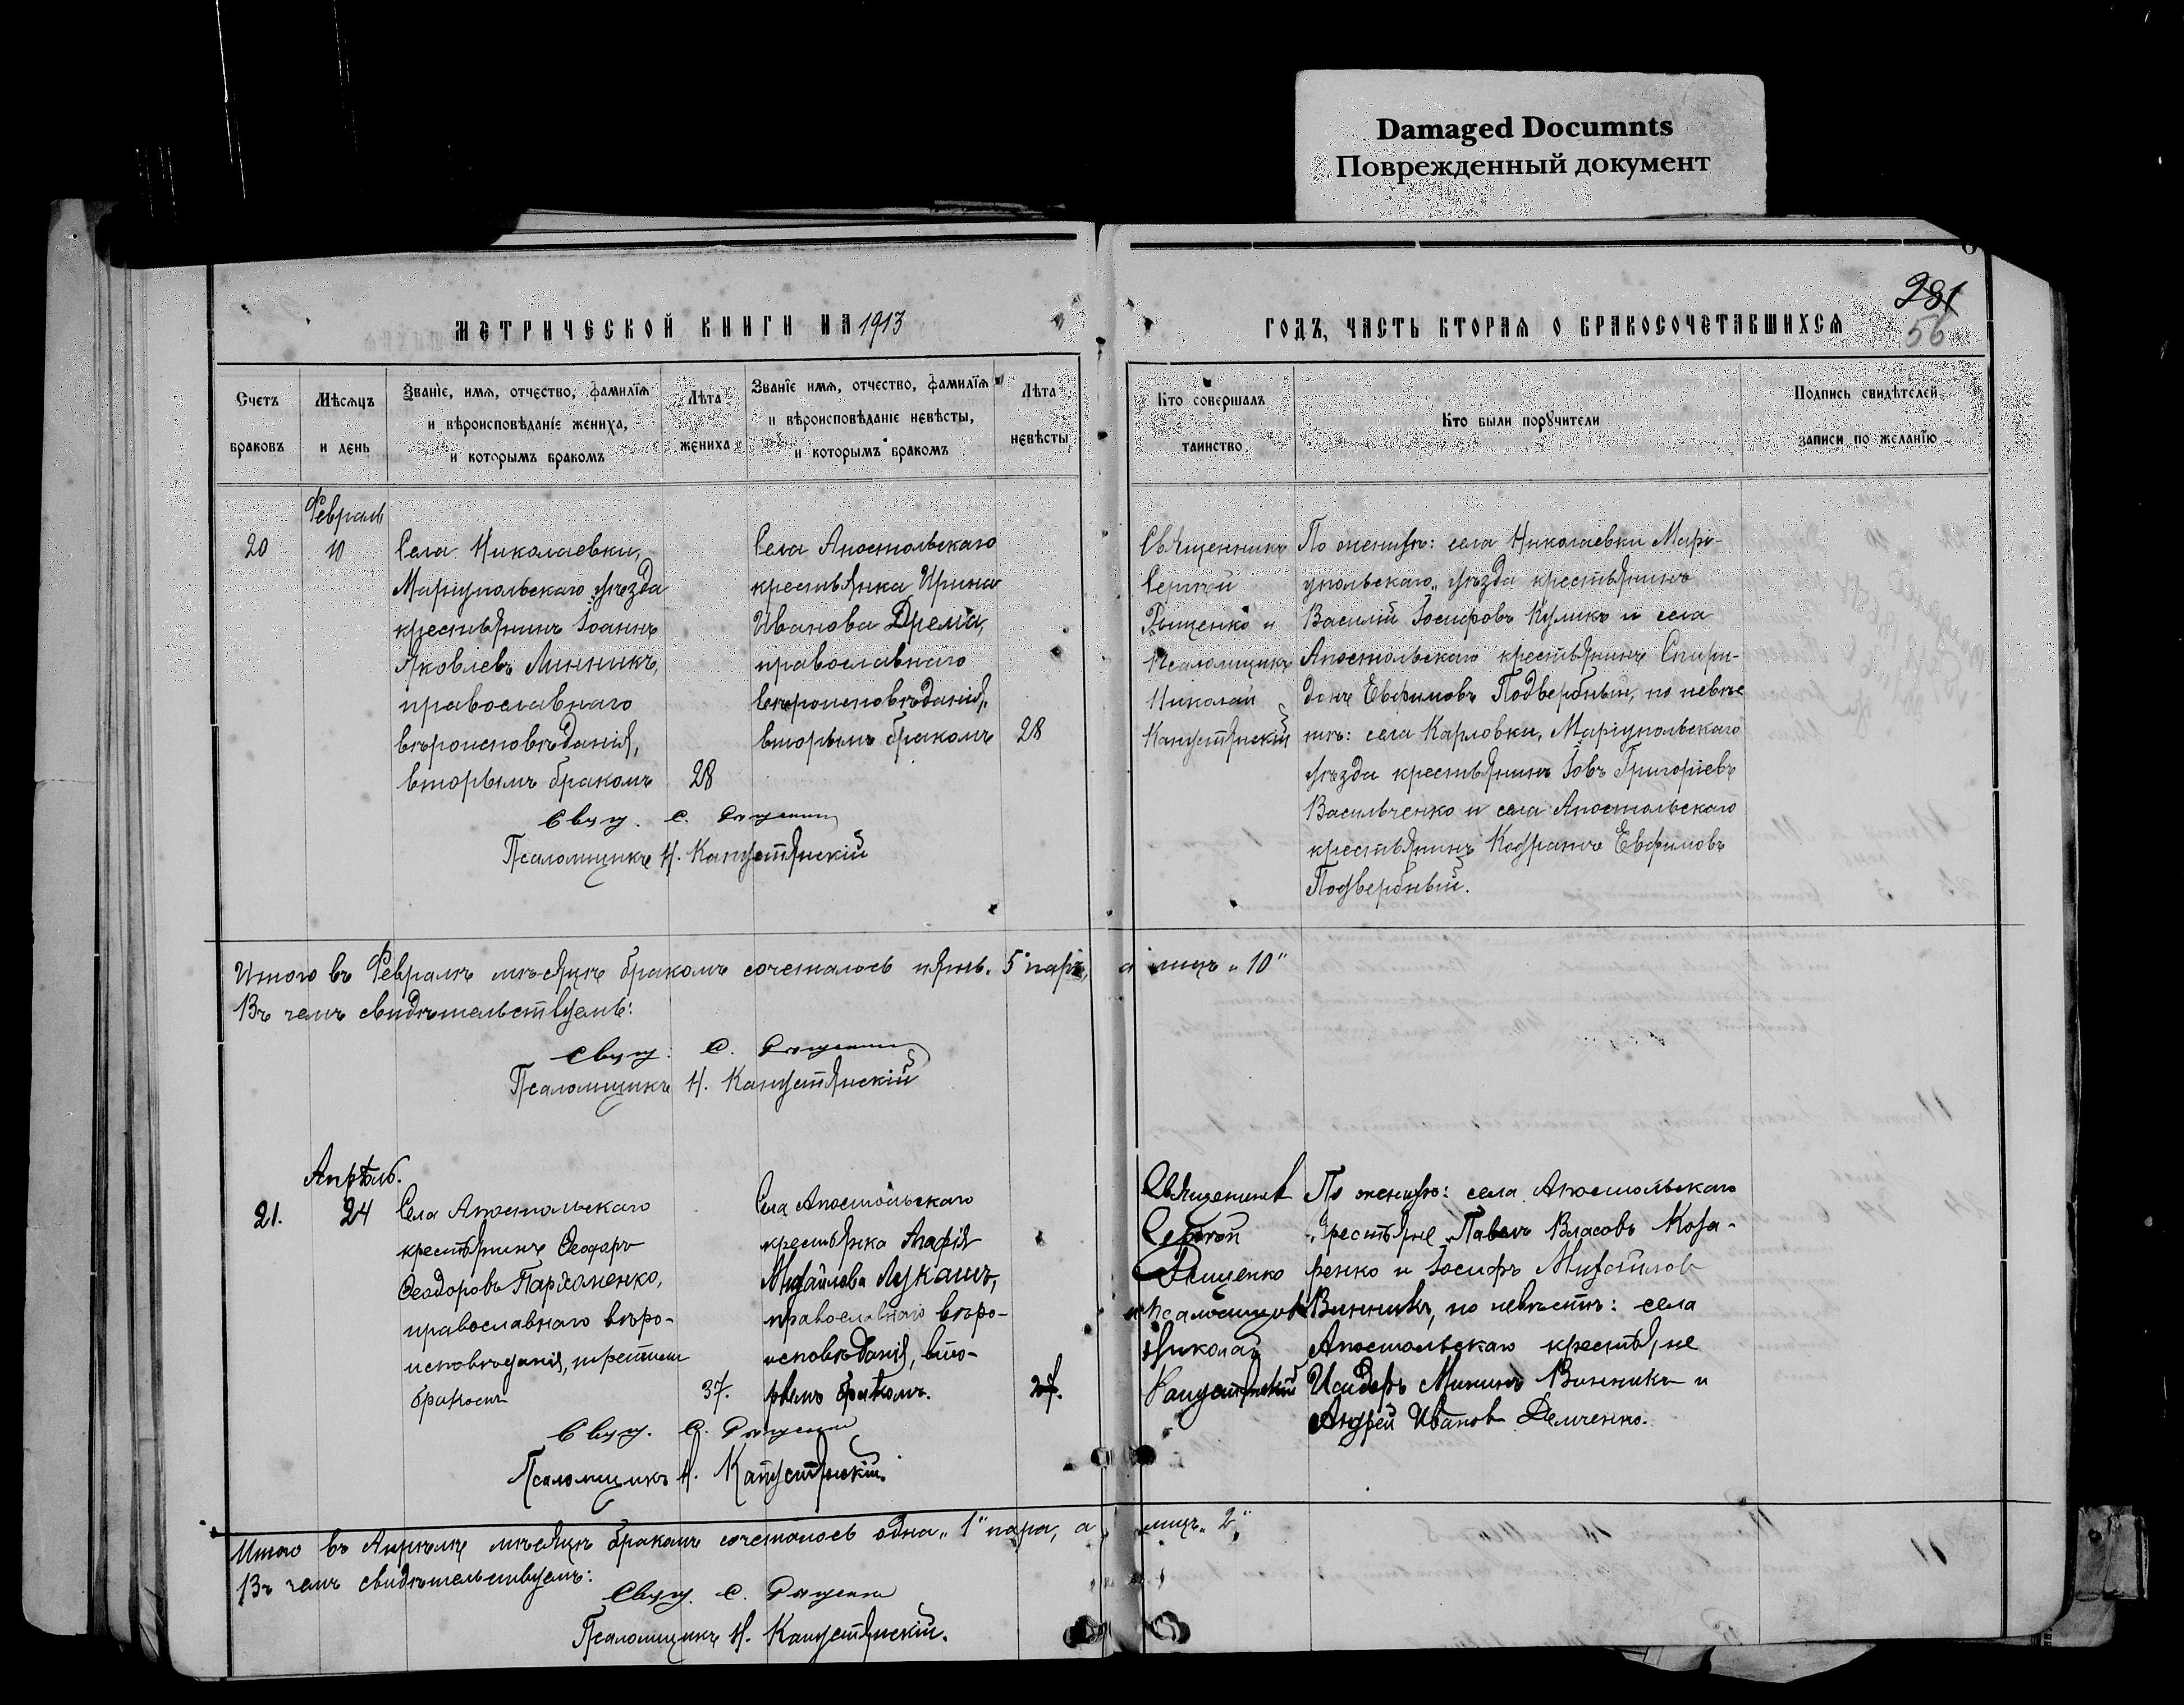 Damaged Documnts
Поврежденный документ
281
56
МЕТРИЧЕСКОЙ КНИГИ НА 1913
ГОДЪ, ЧАСТЬ ВТОРАЯ О БРАКОСОЧЕТАВШИХСЯ
Счетъ
браковъ
Мѣсяцъ
и день
Званіе, имя, отчество, фамилія
и вѣроисповѣданіе жениха,
и которымъ бракомъ
Лѣта
жениха
Званіе имя, отчество, фамилія
и вѣроисповѣданіе невѣсты,
и которымъ бракомъ
Лѣта
невѣсты
Кто совершалъ
таинство
Кто были поручители
Подпись свидѣтелей
записи по желанію
Февраль
20
10
Села Николаевки,
Маріупольскаго уѣзда
крестьянинъ Іоаннъ
Яковлевъ Линникъ,
православнаго
вѣроисповѣданія,
вторымъ бракомъ
28
Села Апостольскаго
крестьянка Ирина
Иванова Дрема,
православнаго
вѣроисповѣданія,
вторымъ бракомъ
28
Священникъ
Сергѣй
Рященко и
Псаломщикъ
Николай
Капустянскій
По женихѣ: села Николаевки Марі-
упольскаго уѣзда крестьянинъ
Василій Іосифовъ Куликъ и села
Апостольскаго крестьянинъ Спири-
донъ Евфимовъ Подвербный, по невѣс
тѣ: села Карловки, Маріупольскаго
уѣзда крестьянинъ Іовъ Григоріевъ
Васильченко и села Апостольскаго
крестьянинъ Кодратъ Евфимовъ
Подвербный.
Свящ. С. Рященко
Псаломщикъ Н. Капустянскій
Итого въ Февралѣ мѣсяцѣ бракомъ сочеталось пять „5" паръ, а лицъ „10"
Въ чемъ свидѣтельствуемъ:
Свящ. С. Рященко
Псаломщикъ Н. Капустянскій
Апрѣль.
21.
24
Села Апостольскаго
крестьянинъ Ѳеодоръ
Ѳеодоровъ Пархоменко,
православнаго вѣро-
исповѣданія, третьимъ
бракомъ
37.
Села Апостольскаго
крестьянка Агафія
Михайлова Лукашъ,
православнаго вѣро-
исповѣданія, вто-
рымъ бракомъ.
27.
Священникъ
Сергѣй
Рященко
и Псаломщикъ
Николай
Капустянскій
По женихѣ: села Апостольскаго
крестьяне Павелъ Власовъ Коза-
ренко и Іосифъ Михайловъ
Винникъ, по невѣстѣ: села
Апостольскаго крестьяне
Исидоръ Мининъ Винникъ и
Андрей Ивановъ Демченко.
Свящ. С. Рященко
Псаломщикъ Н. Капустянскій.
Итого въ Апрѣлѣ мѣсяцѣ бракомъ сочеталось одна „1" пара, а лицъ „2"
Въ чемъ свидѣтельствуемъ:
Свящ. С. Рященко
Псаломщикъ Н. Капустянскій.